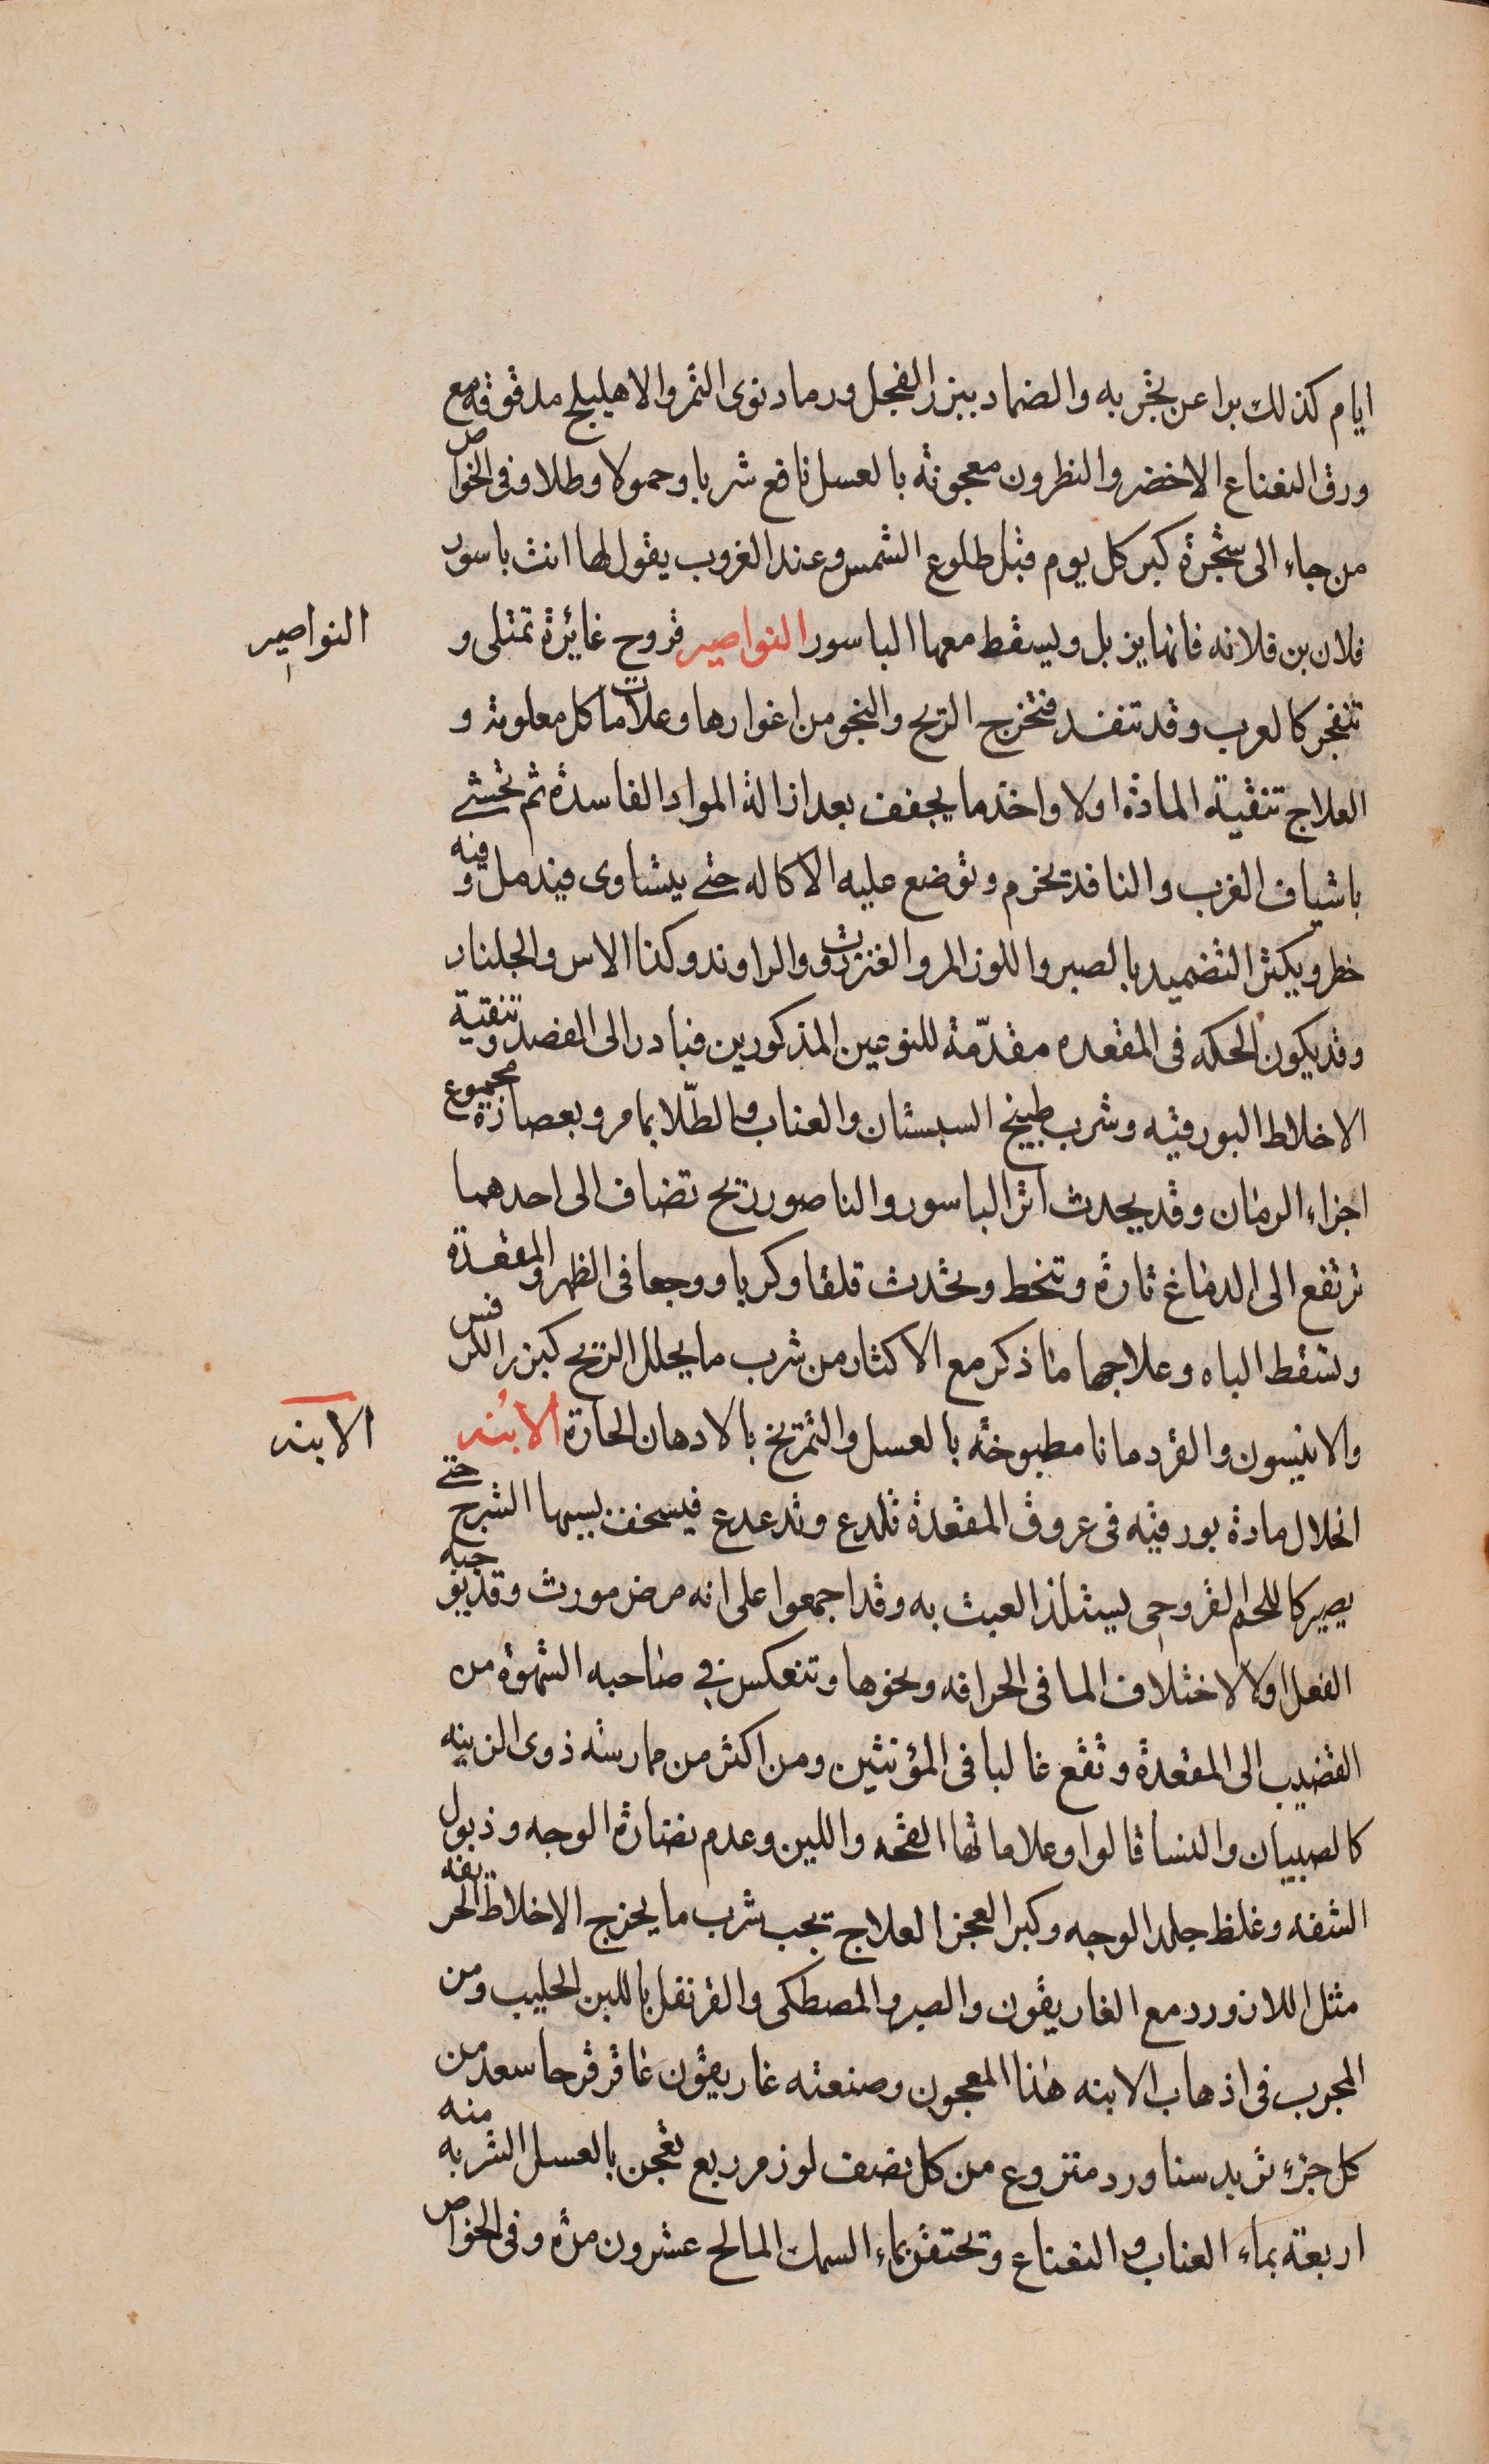 ايام كذلك برا عن تجربه والضماد ببزر الفجل ورماد نوى التمر والاهليلج مدقوقه مع
ورق النعناع الاخضر والنطرون معجونه بالعسل نافع شربا وحمولا وطلا وفى الخواص
من جاء الى شجرة كبر كل يوم قبل طلوع الشمس وعند الغروب يقول لها انت باسور
فلان بن فلانه فانها يزبل ويسقط معها الباسور النواصير قروح غائرة تمتلى و
النواصير
تنفجر كالغرب وقد تنفد فتخرج الريح والنجو من اغوارها وعلامات كل معلومة و
العلاج تنقية المادة اولا واخذ ما يجفف بعد ازالة المواد الفاسدة ثم تحشى
باشياف الغرب والنافد تخرم وتوضع عليه الاكاله حتى يتساوى فيندمل وفيه
خطر ويكثر التضميد بالصبر واللوز المر والعنزروت والراوند وكذا الاس والجلنار
وقد يكون الحكه فى المقعده مقدّمة للنوعين المذكورين فبادر الى الفصد وتنقية
الاخلاط البورقيه وشرب طبيخ السبستان والعناب والطّلا بما مر وبعصارة مجموع
اجزاء الرمان وقد يحدث اثر الباسور والناصور ريح تضاف الى احدهما
ترتفع الى الدماغ تارة وتنحط وتحدث قلقا وكربا ووجعا فى الظهر والمقعدة
وتسقط الباه وعلاجها ما ذكر مع الاكثار من شرب ما يحلل الريح كبزر الكرفس
والانيسون والقردمانا مطبوخه بالعسل والتمريخ بالادهان الحارة الابُنه
الابنه
انحلال مادة بورقيه فى عروق المقعدة تلدع وتدعدع فيسخف بسببها الشرج حتى
يصير كاللحم القروحى يستلذ العبث به وقد اجمعوا على انه مرض مورث وقد يوجبه
الفعل اولا لاختلاف الما فى الحرافه ونحوها وتنعكس فى صاحبه الشهوة من
القضيب الى المقعدة وتقع غالبا فى المؤنثين ومن اكثر من ممارسته ذوى الزينه
كالصبيان والنسا قالوا وعلاماتها القحه واللين وعدم نضارة الوجه وذبول
الشفه وغلظ جلد الوجه وكبر العجز العلاج تجب شرب ما يخرج الاخلاط الحريفه
مثل اللازورد مع الغاريقون والصبر والمصطكى والقرنفل باللبن الحليب ومن
المجرب فى اذهاب الابنه هذا المعجون وصنعته غاريقون عاقرقرحا سعد من
كل جزء تربد سنا ورد منزوع من كل نصف لوز مر ربع تعجن بالعسل الشربه منه
اربعة بماء العناب والنعناع وتحتقن بماء السمك المالح عشرون مرة وفى الخواص